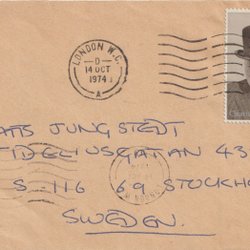 LONDON W.C.
D
14 OCT
1974
A
ATS JUNGSTEDT
TIDELIUSGATAN 43
S-116 69 STOCKH
SWEDEN.